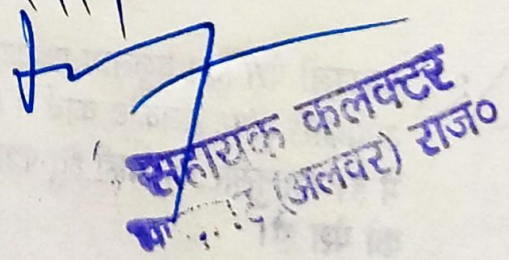 सहायक कलक्टर
(अलवर) राज०